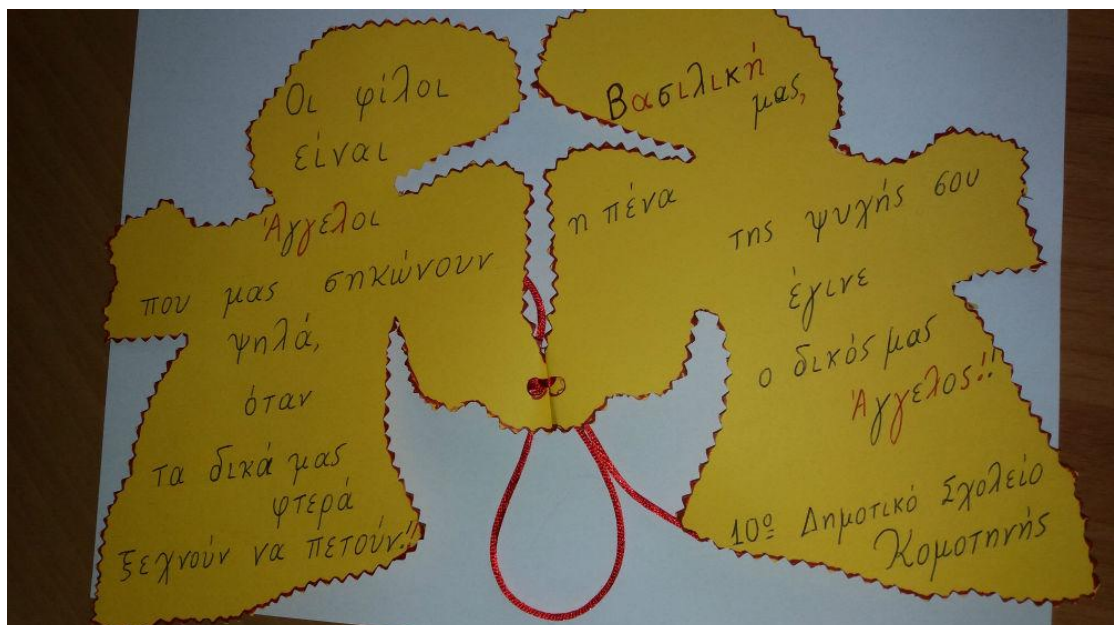 Οι φίλοι
είναι
Άγγελοι
που μας σηκώνουν
ψηλά,
όταν
τα δικά μας
φτερά
ξεχνούν να πετούν!!
Βασιλική
μας,
η πένα
της ψυχής σου
έγινε
ο δικός μας
Άγγελος!!
10º Δημοτικό Σχολείο
Κομοτηνής